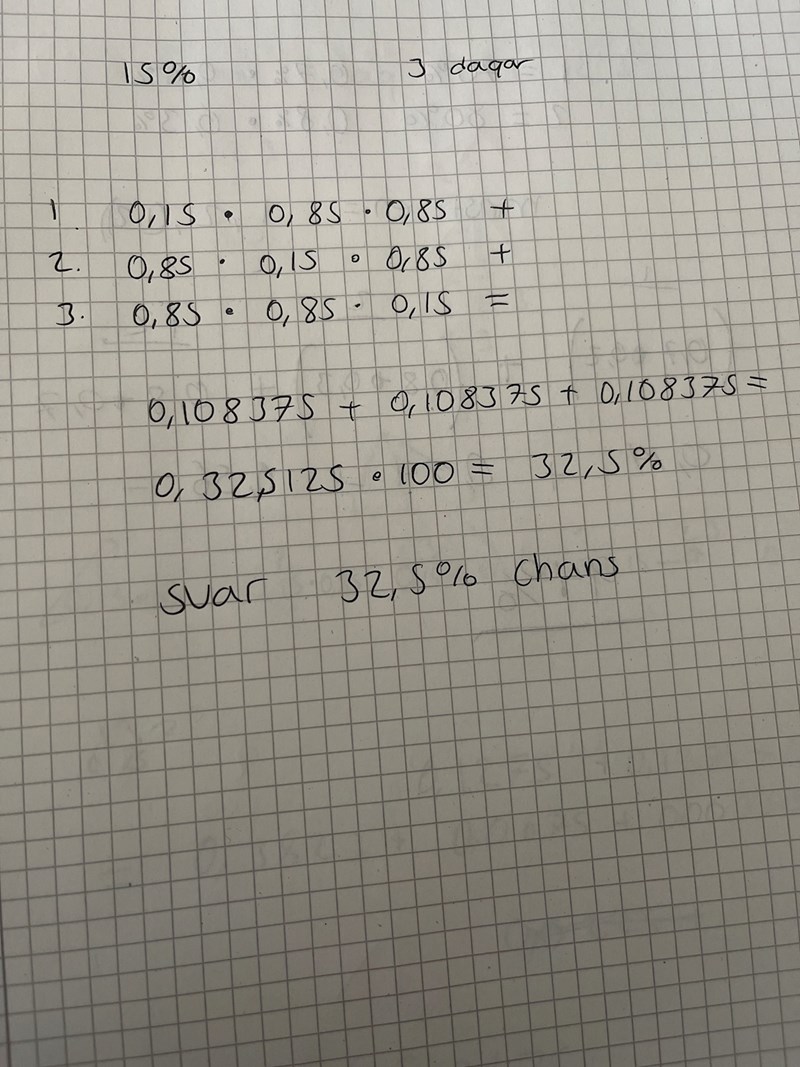 15% 3 dagar
1. 0,15 · 0,85 · 0,85 +
2. 0,85 · 0,15 · 0,85 +
3. 0,85 · 0,85 · 0,15 =
0,108375 + 0,108375 + 0,108375 =
0,32,5125 · 100 = 32,5%
svar 32,5% chans